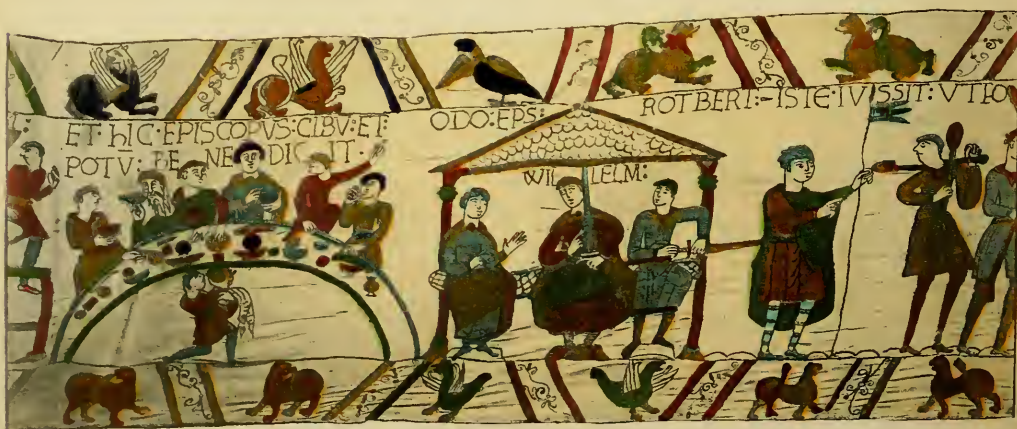 ET hIC·EPISCOPVS:CIBV:ET·
POTV:BE NE DIC IT·
ODO:EPS:
WIL LELM:
ROTBERT:-ISTE·IVSSIT:VTFO